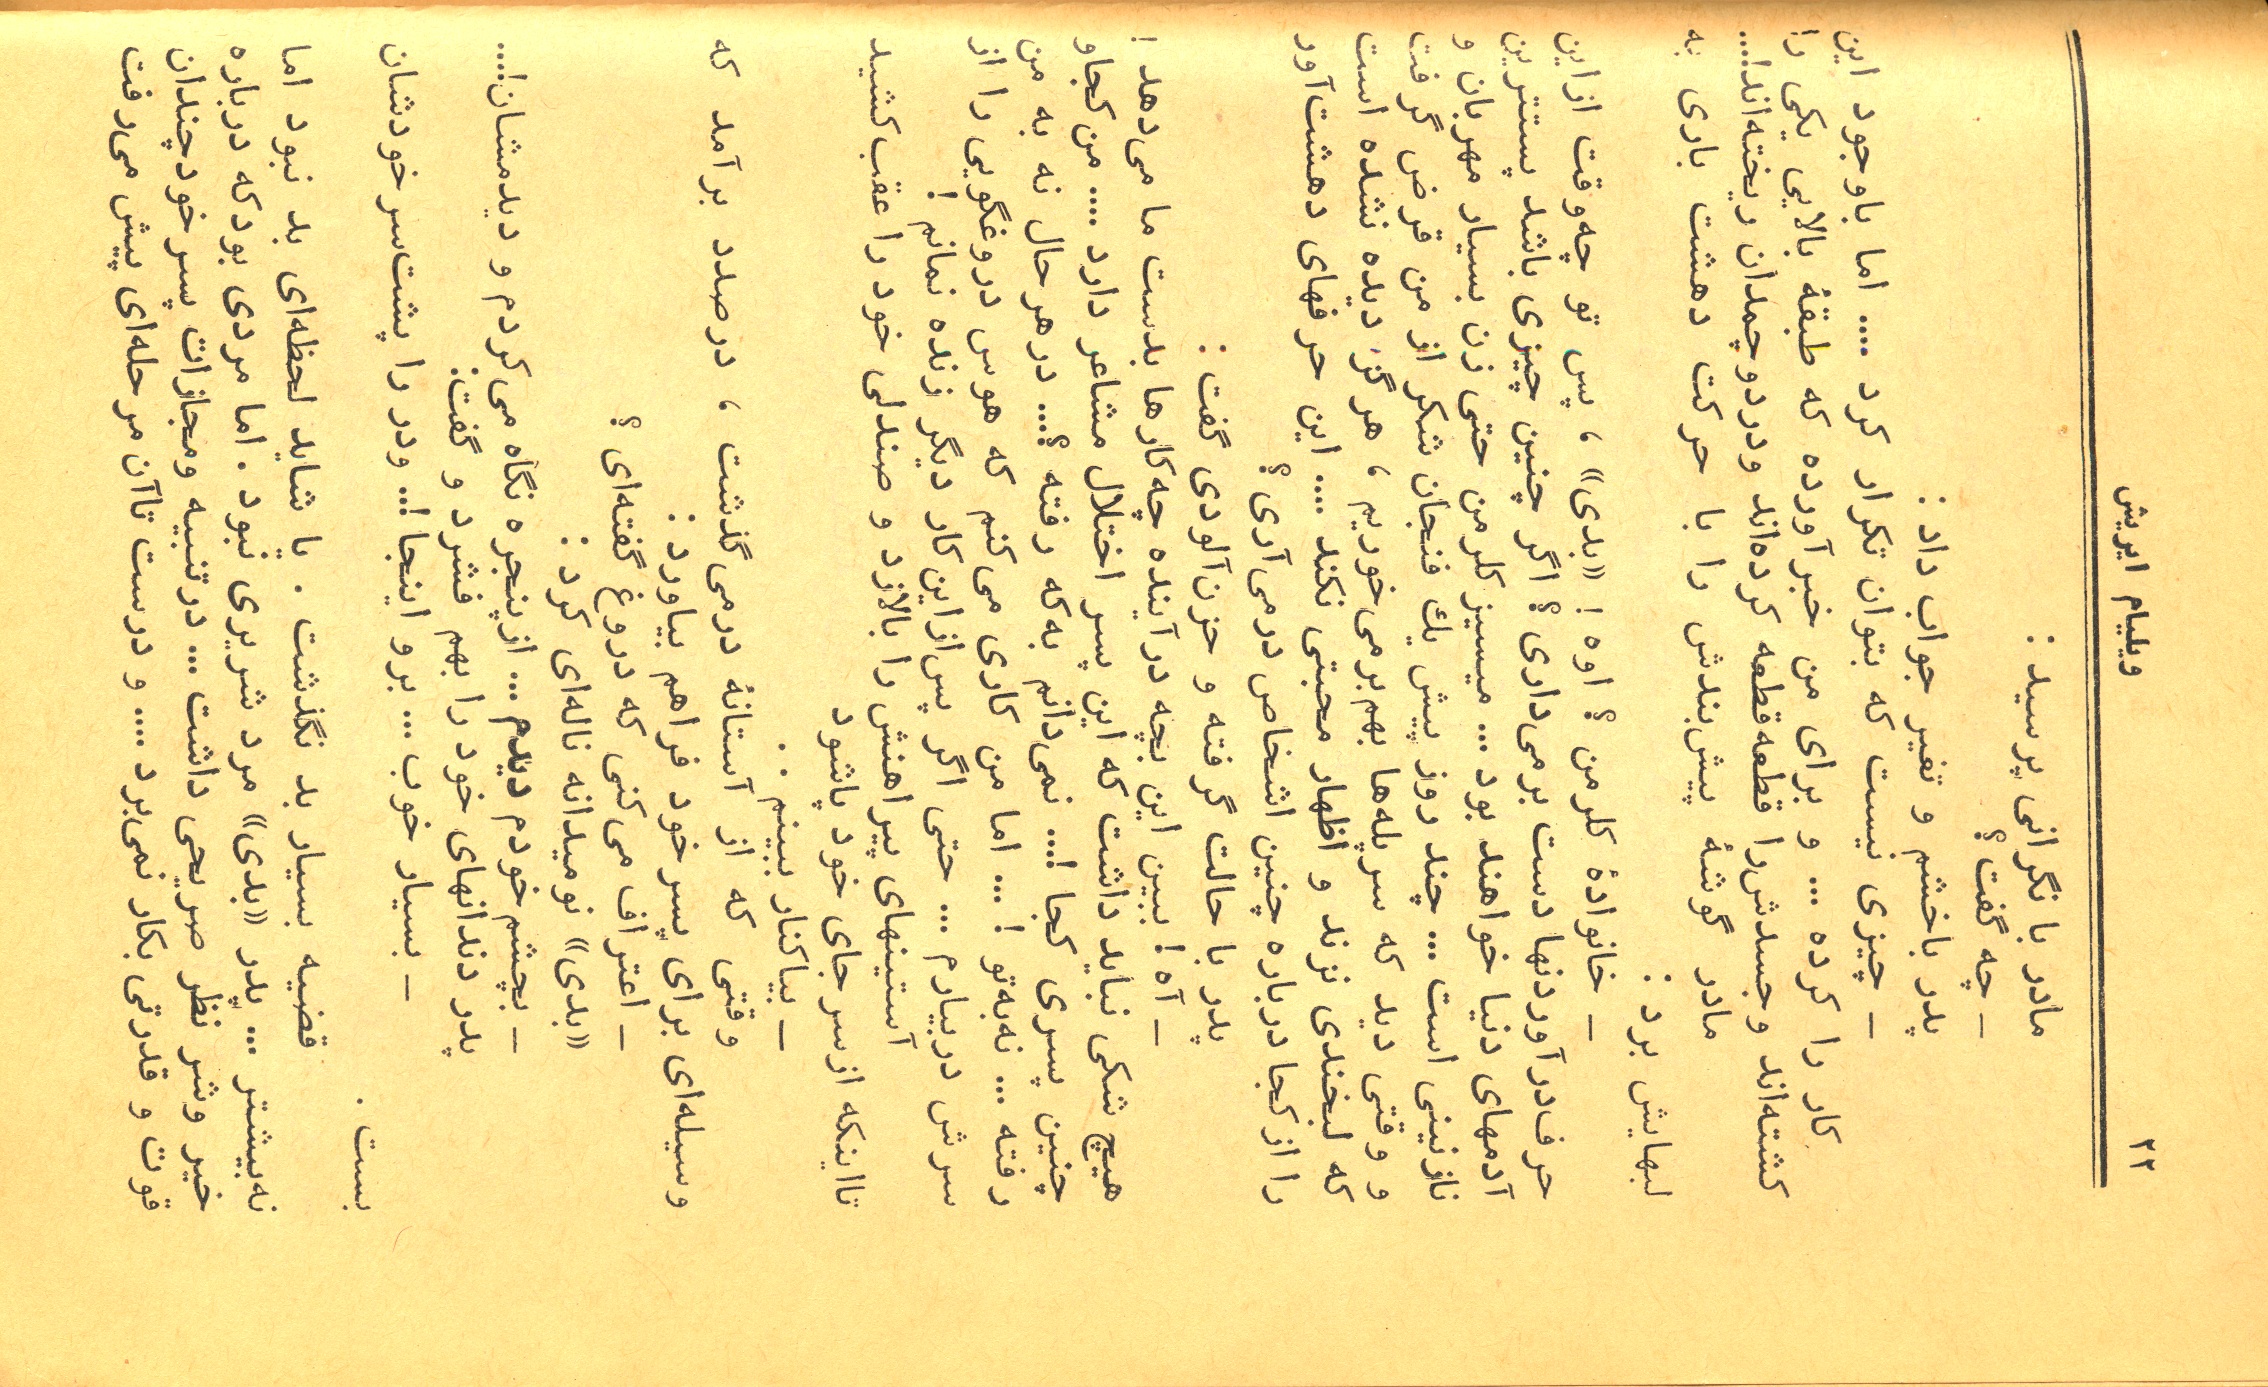 ۲۲
ویلیام ایریش
مادر با نگرانی پرسید :
ـ چه گفت؟
پدر باخشم و تغیر جواب داد :
ـ چیزی نیست که بتوان تکرار کرد .... اما باوجود این
کار را کرده ... و برای من خبرآورده که طبقهٔ بالایی یکی را
کشته‌اند وجسدش‌را قطعه‌قطعه کرده‌اند ودردوچمدان ریخته‌اند!...
مادر گوشهٔ پیش‌بندش را با حرکت دهشت باری به
لبهایش برد :
ـ خانوادهٔ کلرمن ؟ اوه ! «بدی» ، پس تو چه‌وقت ازاین
حرف‌درآوردنها دست برمی‌داری ؟ اگر چنین چیزی باشد پستترین
آدمهای دنیا خواهند بود... میسیز کلرمن حتی زن بسیار مهربان و
نازنینی است ... چند روز پیش یك فنجان شکر از من قرض گرفت
و وقتی دید که سرپله‌ها بهم‌برمی‌خوریم ، هرگز دیده نشده است
که لبخندی نزند و اظهار محبتی نکند .... این حرفهای دهشت‌آور
را ازکجا درباره چنین اشخاص درمی‌آری؟
پدر با حالت گرفته و حزن‌آلودی گفت :
ـ آه ! ببین این بچه درآینده چه‌کارها بدست ما می‌دهد !
هیچ شکی نباید داشت که این پسر اختلال مشاعر دارد .... من‌کجاو
چنین پسری کجا !... نمی‌دانم به‌که رفته ؟... درهرحال نه به من
رفته ... نه‌به‌تو ! ... اما من کاری می‌کنم که هوس دروغگویی را از
سرش دربیارم ... حتی اگر پس‌ازاین‌کار دیگر زنده نمانم !
آستینهای پیراهنش را بالازد و صندلی خود را عقب‌کشید
تااینکه ازسرجای خود پاشود
ـ بیاکنار ببینم . .
وقتی که از آستانهٔ درمی‌گذشت ، درصدد برآمد که
وسیله‌ای برای پسرخود فراهم بیاورد :
ـ اعتراف می‌کنی که دروغ گفته‌ای ؟
«بدی» نومیدانه ناله‌ای کرد :
ـ بچشم خودم دیدم ... ازپنجره نگاه می‌کردم و دیدمشان!...
پدر دندانهای خود را بهم فشرد و گفت:
ـ بسیار خوب ... برو اینجا!.. ودر را پشت‌سرخودشان
بست .
قضیه بسیار بد نگذشت . یا شاید لحظه‌ای بد نبود اما
نه‌بیشتر ... پدر «بدی» مرد شریری نبود . اما مردی بودکه درباره
خیر وشر نظر صریحی داشت ... درتنبیه ومجازات پسرخودچندان
قوت و قدرتی بکار نمی‌برد .... و درست تاآن مرحله‌ای پیش می‌رفت